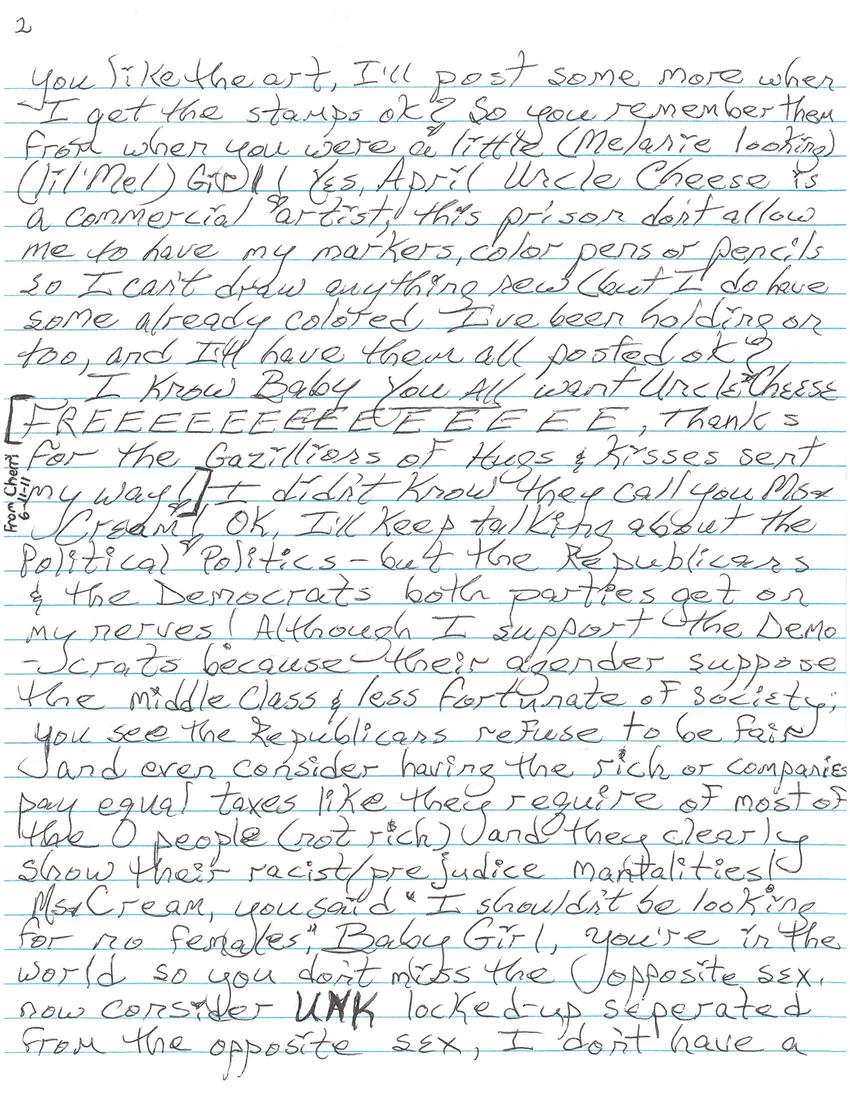 2
you like the art, I'll post some more when
I get the stamps ok? So you remember them
from when you were a little (Melanie looking)
(lil' Mel) Girl!! Yes, April Uncle Cheese is
a commercial "artist," this prison don't allow
me to have my markers, color pens or pencils
so I can't draw anything new (but I do have
some already colored I've been holding on
too, and I'll have them all posted ok?
I Know Baby You All want Uncle Cheese
[FREEEEEEEEEEEEEEE, Thanks
for the Gazillions of Hugs & Kisses sent
my way!] I didn't Know they call you Ms.
From Cherri 6-11-11
Cream! OK, I'll Keep talking about the
Political Politics - but the Republicans
& the Democrats both parties get on
my nerves! Although I support the Demo
-crats because their agender suppose
the middle class & less fortunate of society;
you see the Republicans refuse to be fair
and even consider having the rich or companies
pay equal taxes like they require of most of
the people (not rich) and they clearly
show their racist/prejudice mantalities!
Ms. Cream, you said "I shouldn't be looking
for no females," Baby Girl, you're in the
world so you don't miss the opposite sex.
now consider UNK locked-up seperated
from the opposite sex, I don't have a